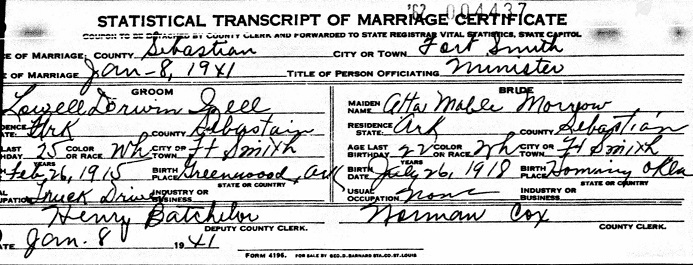 '62 004437
STATISTICAL TRANSCRIPT OF MARRIAGE CERTIFICATE
COUPON TO BE DETACHED BY COUNTY CLERK AND FORWARDED TO STATE REGISTRAR VITAL STATISTICS, STATE CAPITOL
E OF MARRIAGE: COUNTY Sebastian CITY OR TOWN Fort Smith
E OF MARRIAGE Jan-8, 1941 TITLE OF PERSON OFFICIATING Minister
GROOM BRIDE
Lowell Derwin MAIDEN NAME Alta Mable Morrow
DENCE ATE: Ark COUNTY Sebastain RESIDENCE STATE: Ark COUNTY Sebastian
LAST HDAY 25 YEARS COLOR OR RACE Wh CITY OR TOWN Ft Smith AGE LAST BIRTHDAY 22 YEARS COLOR OR RACE Wh CITY OR TOWN Ft Smith
Feb 26, 1915 BIRTH PLACE Greenwood, Ark STATE OR COUNTRY BIRTH DATE July 26, 1918 BIRTH PLACE Hominy Okla STATE OR COUNTRY
AL UPATION Truck Driver INDUSTRY OR BUSINESS USUAL OCCUPATION None INDUSTRY OR BUSINESS
Henry Batchelor DEPUTY COUNTY CLERK. Norman Cox COUNTY CLERK.
ATE Jan. 8 1941
FORM 4196. FOR SALE BY GEO. D. BARNARD STA. CO. ST. LOUIS